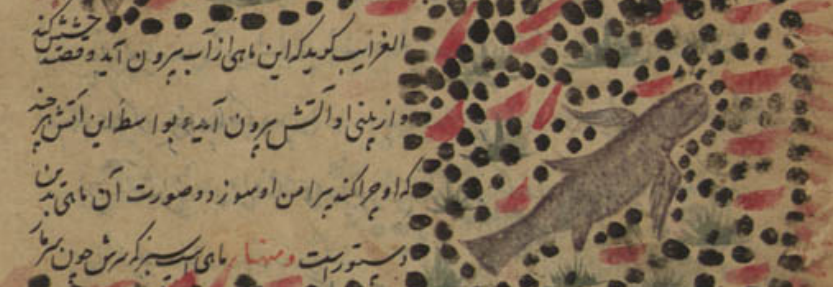 الغرایب کوید که این ماهی از آب بیرون آید و قصد خشکی کند
و از بینی او آتش بیرون آید و بواسطهٔ این آتش هر چند
که او چرا کند پیرامن او سوزد و صورت آن ماهی بدین
دستورست ومنها ماهی است سبز که سرش چون سر مار